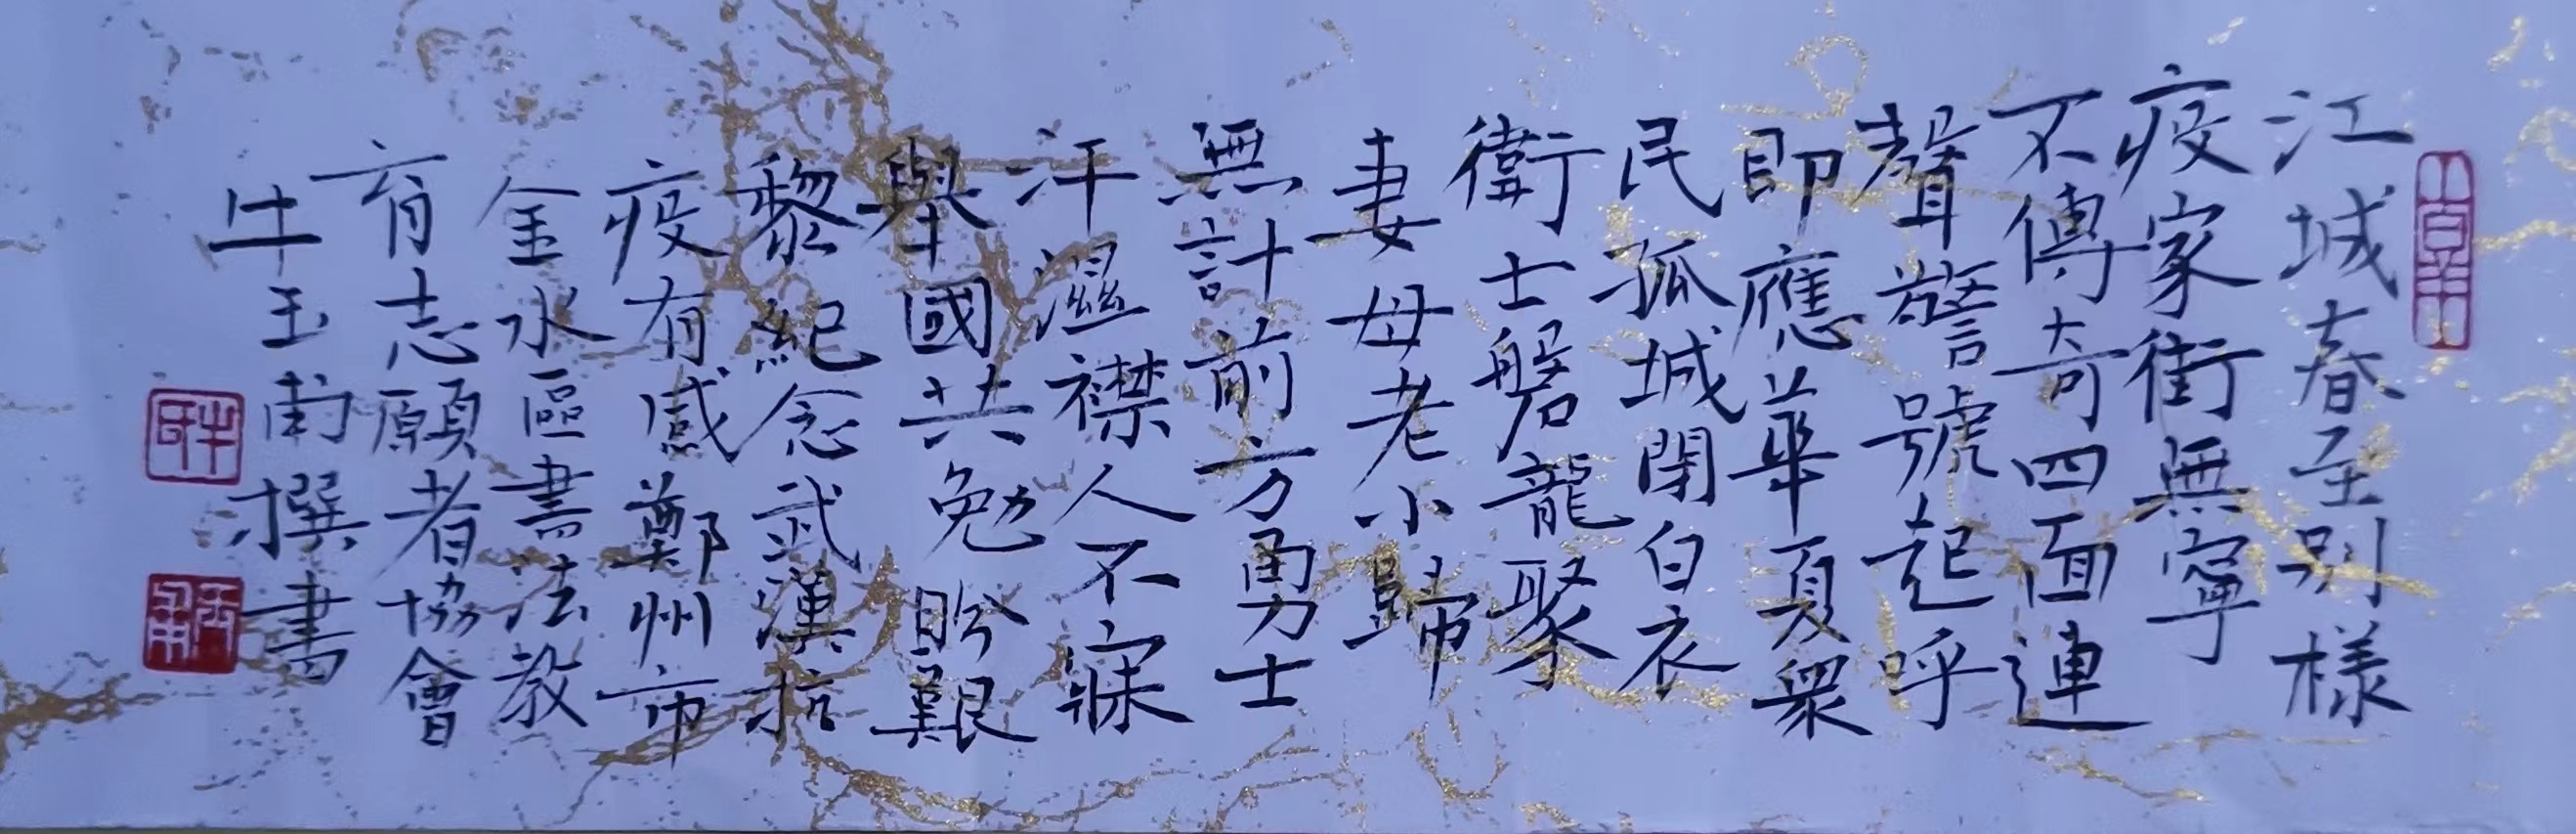 江城春至別樣
疫家街無寧
不傳奇四面連
聲警號起呼
即應華夏眾
民孤城閉白衣
衛士磐龍聚
妻母老小歸
無計前方勇士
汗濕襟人不寐
舉國共勉盼艱
黎紀念武漢抗
疫有感鄭州市
金水區書法教
育志願者協會
牛玉甫撰書